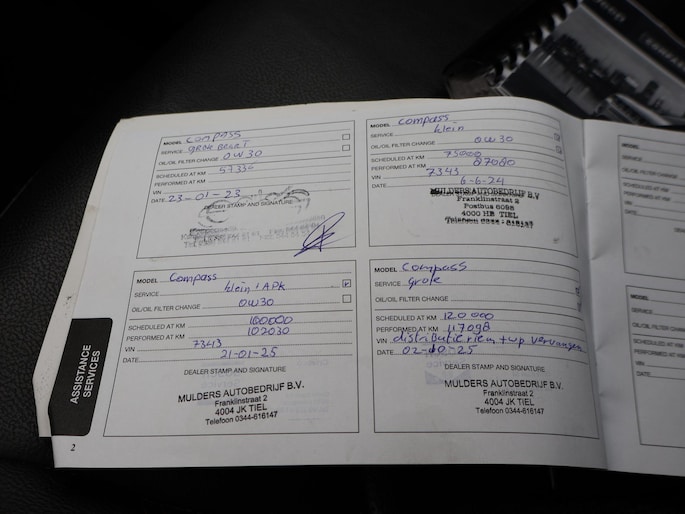 MODEL Compass
SERVICE GROTE BEURT
OIL/OIL FILTER CHANGE 0W30
SCHEDULED AT KM
PERFORMED AT KM
VIN
DATE 23-01-23
DEALER STAMP AND SIGNATURE
MODEL Compass
SERVICE klein
OIL/OIL FILTER CHANGE 0W30
SCHEDULED AT KM 75000
PERFORMED AT KM 87080
VIN 7343
DATE 6-6-24
MULDERS AUTOBEDRIJF B.V
Franklinstraat 2
Postbus 6098
4000 HB TIEL
MODEL Compass
SERVICE klein + APK
OIL/OIL FILTER CHANGE 0W30
SCHEDULED AT KM 100000
PERFORMED AT KM 102030
VIN 7343
DATE 21-01-25
DEALER STAMP AND SIGNATURE
MULDERS AUTOBEDRIJF B.V.
Franklinstraat 2
4004 JK TIEL
Telefoon 0344-616147
MODEL Compass
SERVICE grote
OIL/OIL FILTER CHANGE
SCHEDULED AT KM 120000
PERFORMED AT KM 117098
VIN distributieriem + wp vervangen
DATE 02-10-25
DEALER STAMP AND SIGNATURE
MULDERS AUTOBEDRIJF B.V.
Franklinstraat 2
4004 JK TIEL
Telefoon 0344-616147
ASSISTANCE
SERVICES
2